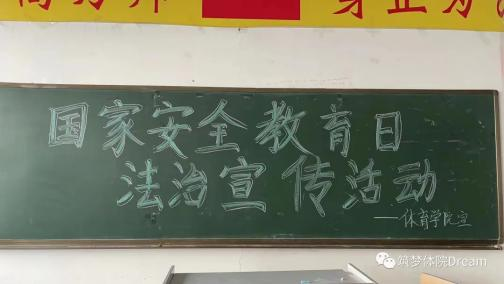 身正为
国家安全教育日
法治宣传活动
——体育学院宣
筑梦体院Dream